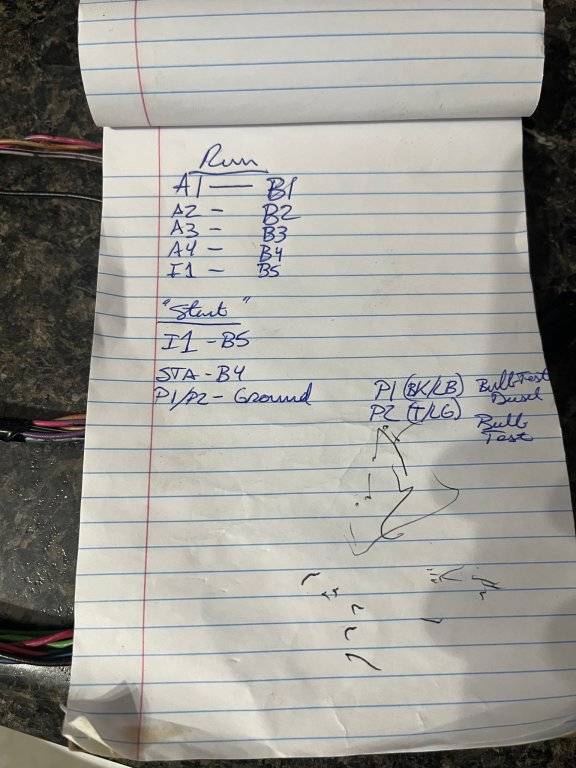 Run
A1 — B1
A2 - B2
A3 - B3
A4 - B4
I1 - B5
"Start"
I1 - B5
STA - B4
P1/P2 - Ground
P1 (BK/LB) Bulb Test
P2 (T/LG) Bulb
Test